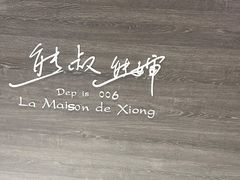 熊叔 熊婶
Dep is  006
La Maison de Xiong